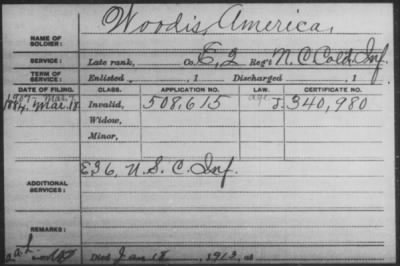 Woodis, America,
NAME OF SOLDIER:
SERVICE: Late rank, Co. E, 2 Reg't N.C. Cold. Inf.
TERM OF SERVICE: Enlisted , 1 Discharged , 1
DATE OF FILING. CLASS. APPLICATION NO. LAW. CERTIFICATE NO.
1907- Mar. 7
1884. Mar. 18. Invalid, 508,615 age J. 340,980
Widow,
Minor,
E 36, U.S.C. Inf.
ADDITIONAL SERVICES:
REMARKS:
Died Jan 18, 1913, at